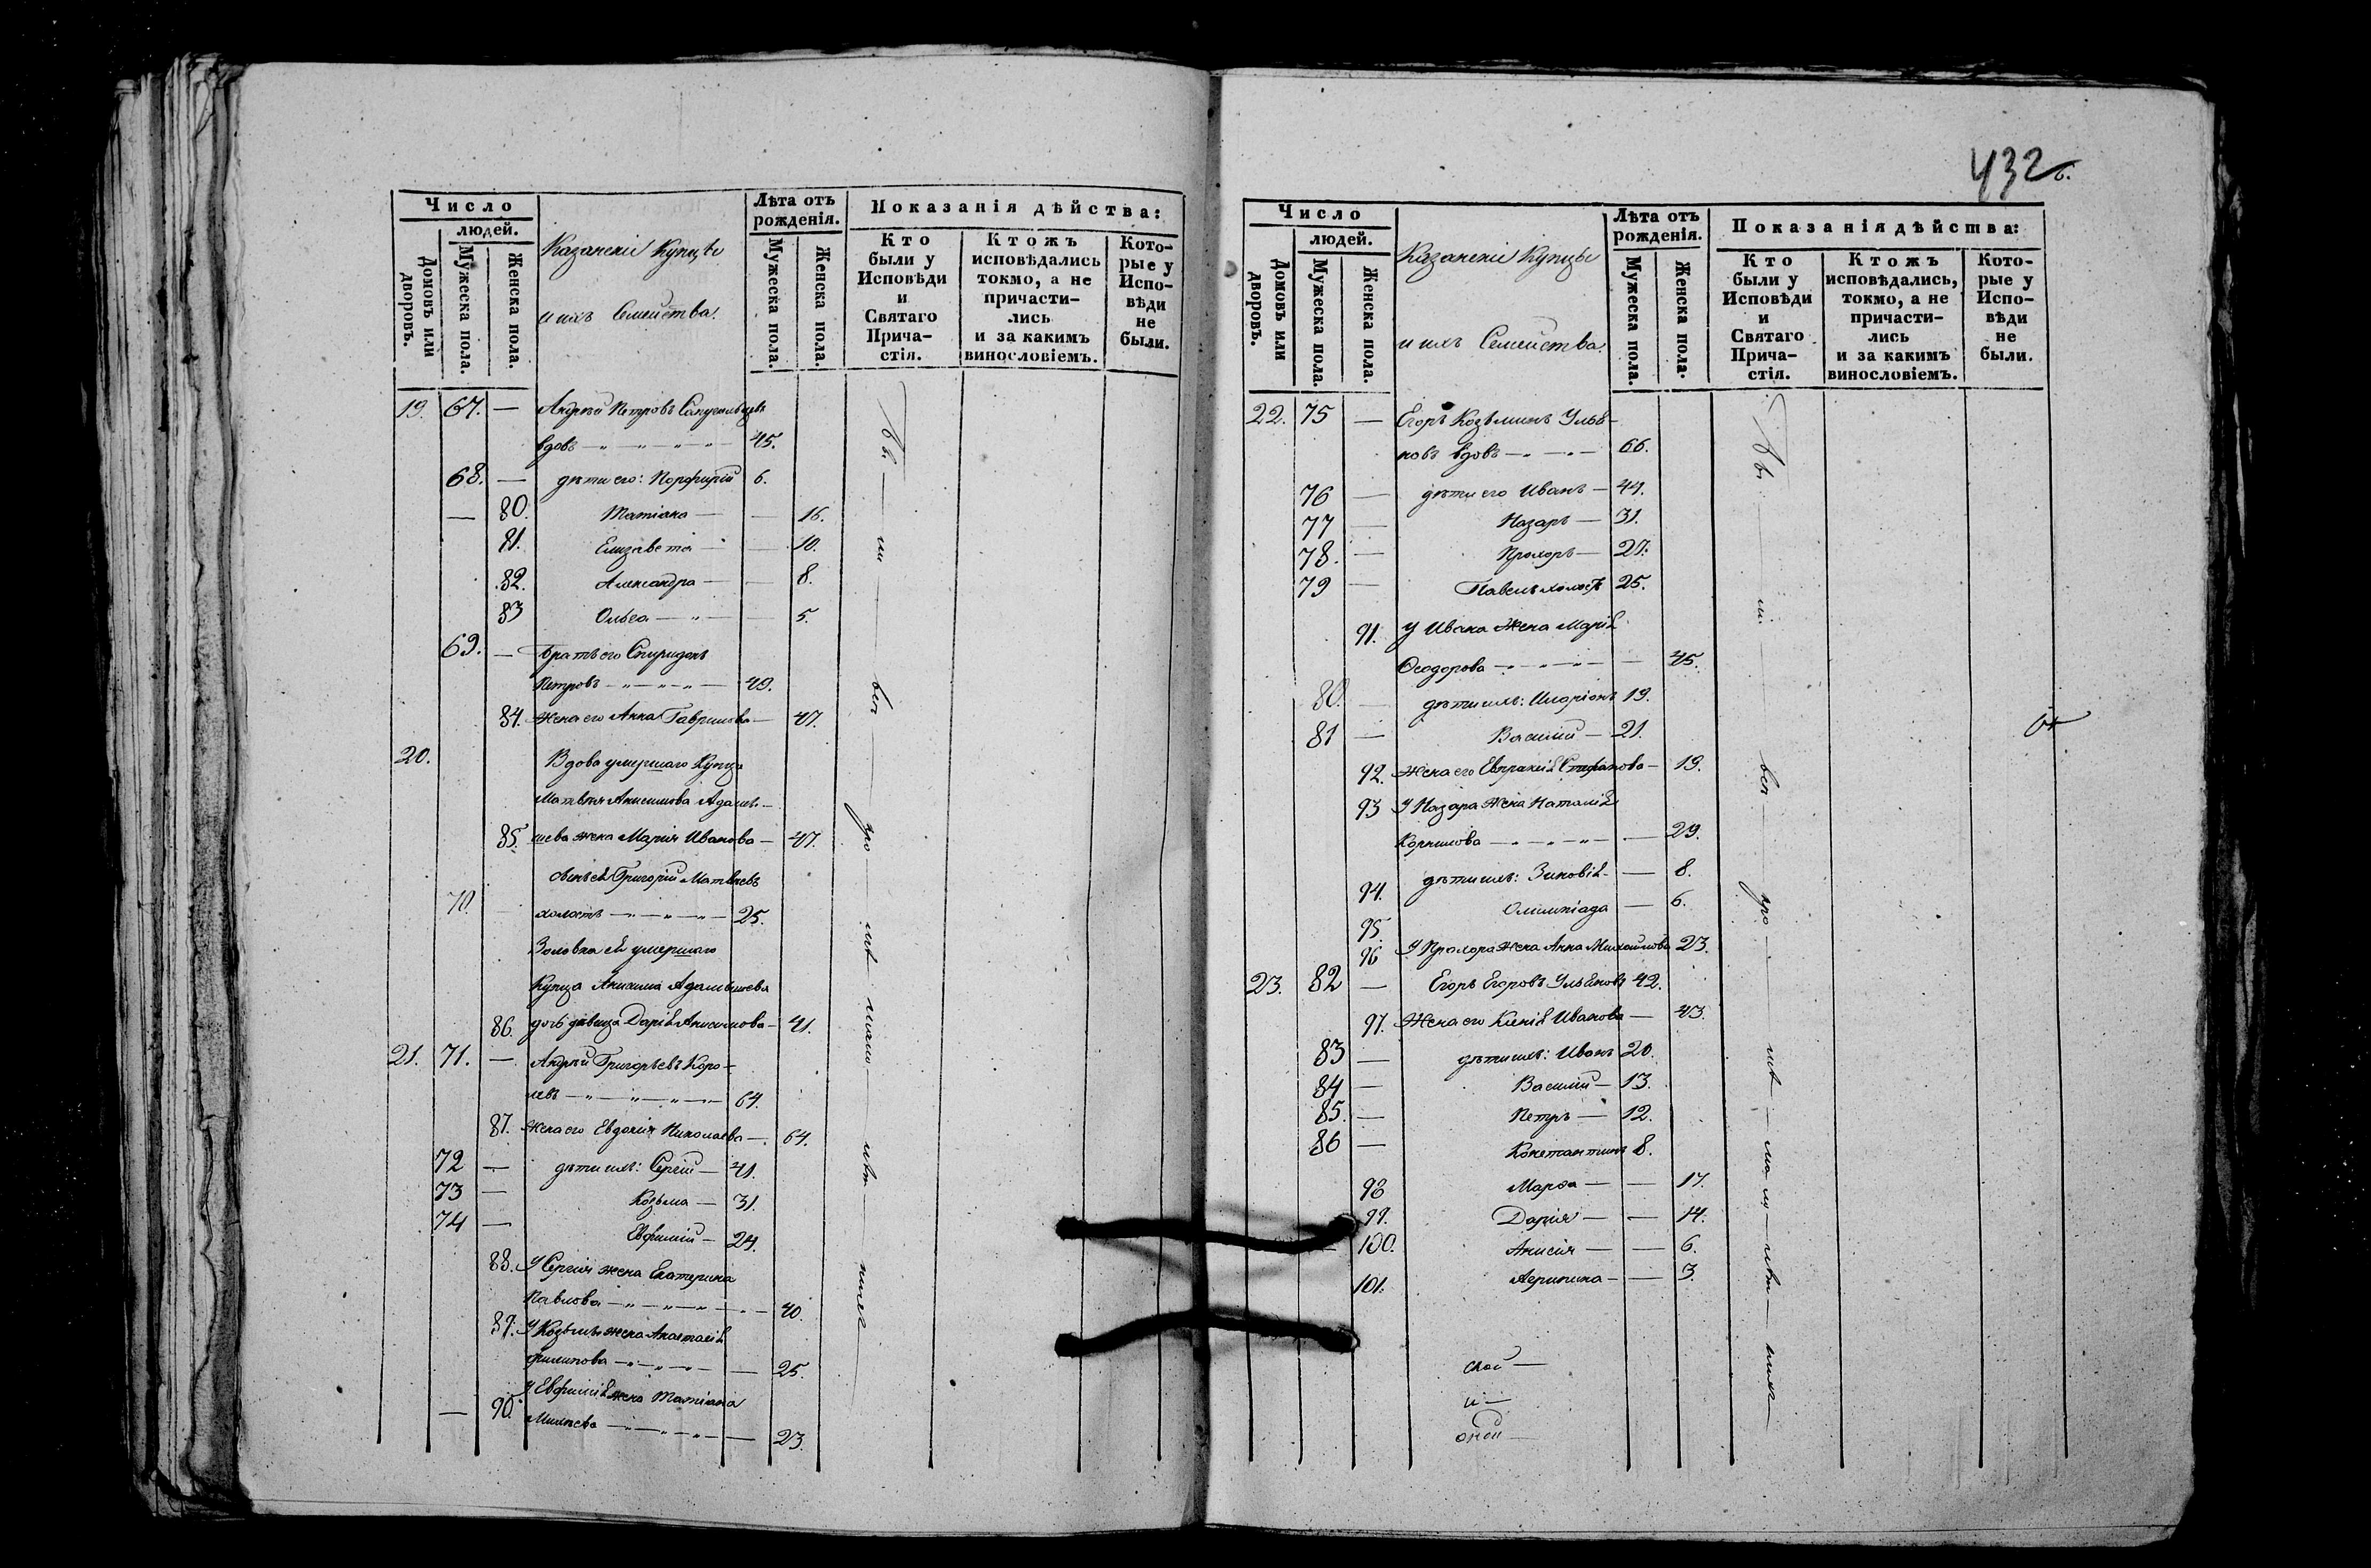 432
Число
людей.
Домовъ или дворовъ.
Мужеска пола.
Женска пола.
Казанскіе Купцы
и ихъ Семейства.
Лѣта отъ рожденія.
Мужеска пола.
Женска пола.
Показанія дѣйства:
Кто были у Исповѣди и Святаго Прича-стія.
Ктожъ исповѣдались токмо, а не причасти-лись и за какимъ винословіемъ.
Кото-рые у Испо-вѣди не были.
19. 67. — Андрей Петровъ
вдовъ — „ — „ — „ — 45.
68. — дѣти его: Порфирій 6.
— 80. Татіана — — 16.
81. Елизавета — — 10.
82. Александра — — 8.
83 Ольга — „ — — 5.
69. — Братъ его Спиридонъ
Петровъ — „ — „ — „ — 49.
84. Жена его Анна Гаврилова — 47.
20. Вдова умершаго Купца
Матвѣя Анисимова Адамы-
шева жена Марія Иванова — 47.
85.
сынъ ея Григорій Матвѣевъ
70. холостъ — „ — „ — „ — 25.
Золовка ей умершаго
Купца Анисима Адамышева
86. дочь дѣвица Дарія Анисимова — 41.
21. 71. — Андрей Григорьевъ Коро-
левъ — „ — „ — „ — 64.
87. Жена его Евдокія Николаева — 64.
72 — дѣти ихъ: Сергій — 41.
73 — Козьма — 31.
74 — Евфимій — 24.
88. У Сергія жена Екатерина
Павлова — „ — „ — „ — 40.
89. У Козьмы жена Анастасія
Филипова — „ — „ — „ — 25.
У Евфимія жена Татіана
— 90. Михѣева — „ — „ — 23.
Число
людей.
Домовъ или дворовъ.
Мужеска пола.
Женска пола.
Казанскіе Купцы
и ихъ Семейства.
Лѣта отъ рожденія.
Мужеска пола.
Женска пола.
Показанія дѣйства:
Кто были у Исповѣди и Святаго Прича-стія.
Ктожъ исповѣдались, токмо, а не причасти-лись и за какимъ винословіемъ.
Кото-рые у Испо-вѣди не были.
22. 75 — Егоръ Козьминъ Улья-
новъ вдовъ — „ — „ — 66.
76 — дѣти его Иванъ — 44.
77 — Назаръ — 31.
78. — Прохоръ — 27.
79 — Павелъ холостъ 25.
91. У Ивана жена Марія
Ѳеодорова — „ — „ — „ — 45.
80. — дѣти ихъ: Иларіонъ 19.
81 — Василій — 21.
92. Жена его Евпраксія Стефанова — 19.
93 У Назара жена Наталія
Корнилова — „ — „ — „ — 29.
94. дѣти ихъ: Зиновія — — 8.
95. Олимпіада — 6.
96 У Прохора жена Анна Михайлова 23.
23. 82 — Егоръ Егоровъ Ульяновъ 42.
97. Жена его Ксенія Иванова — 43.
83 — дѣти ихъ: Иванъ 20.
84 — Василій — 13.
85. — Петръ — 12.
86 — Константинъ 8.
98 Марѳа — — 17.
99. Дарія — — 14.
100. Анисія — — 6.
101. Агрипина — — 3.